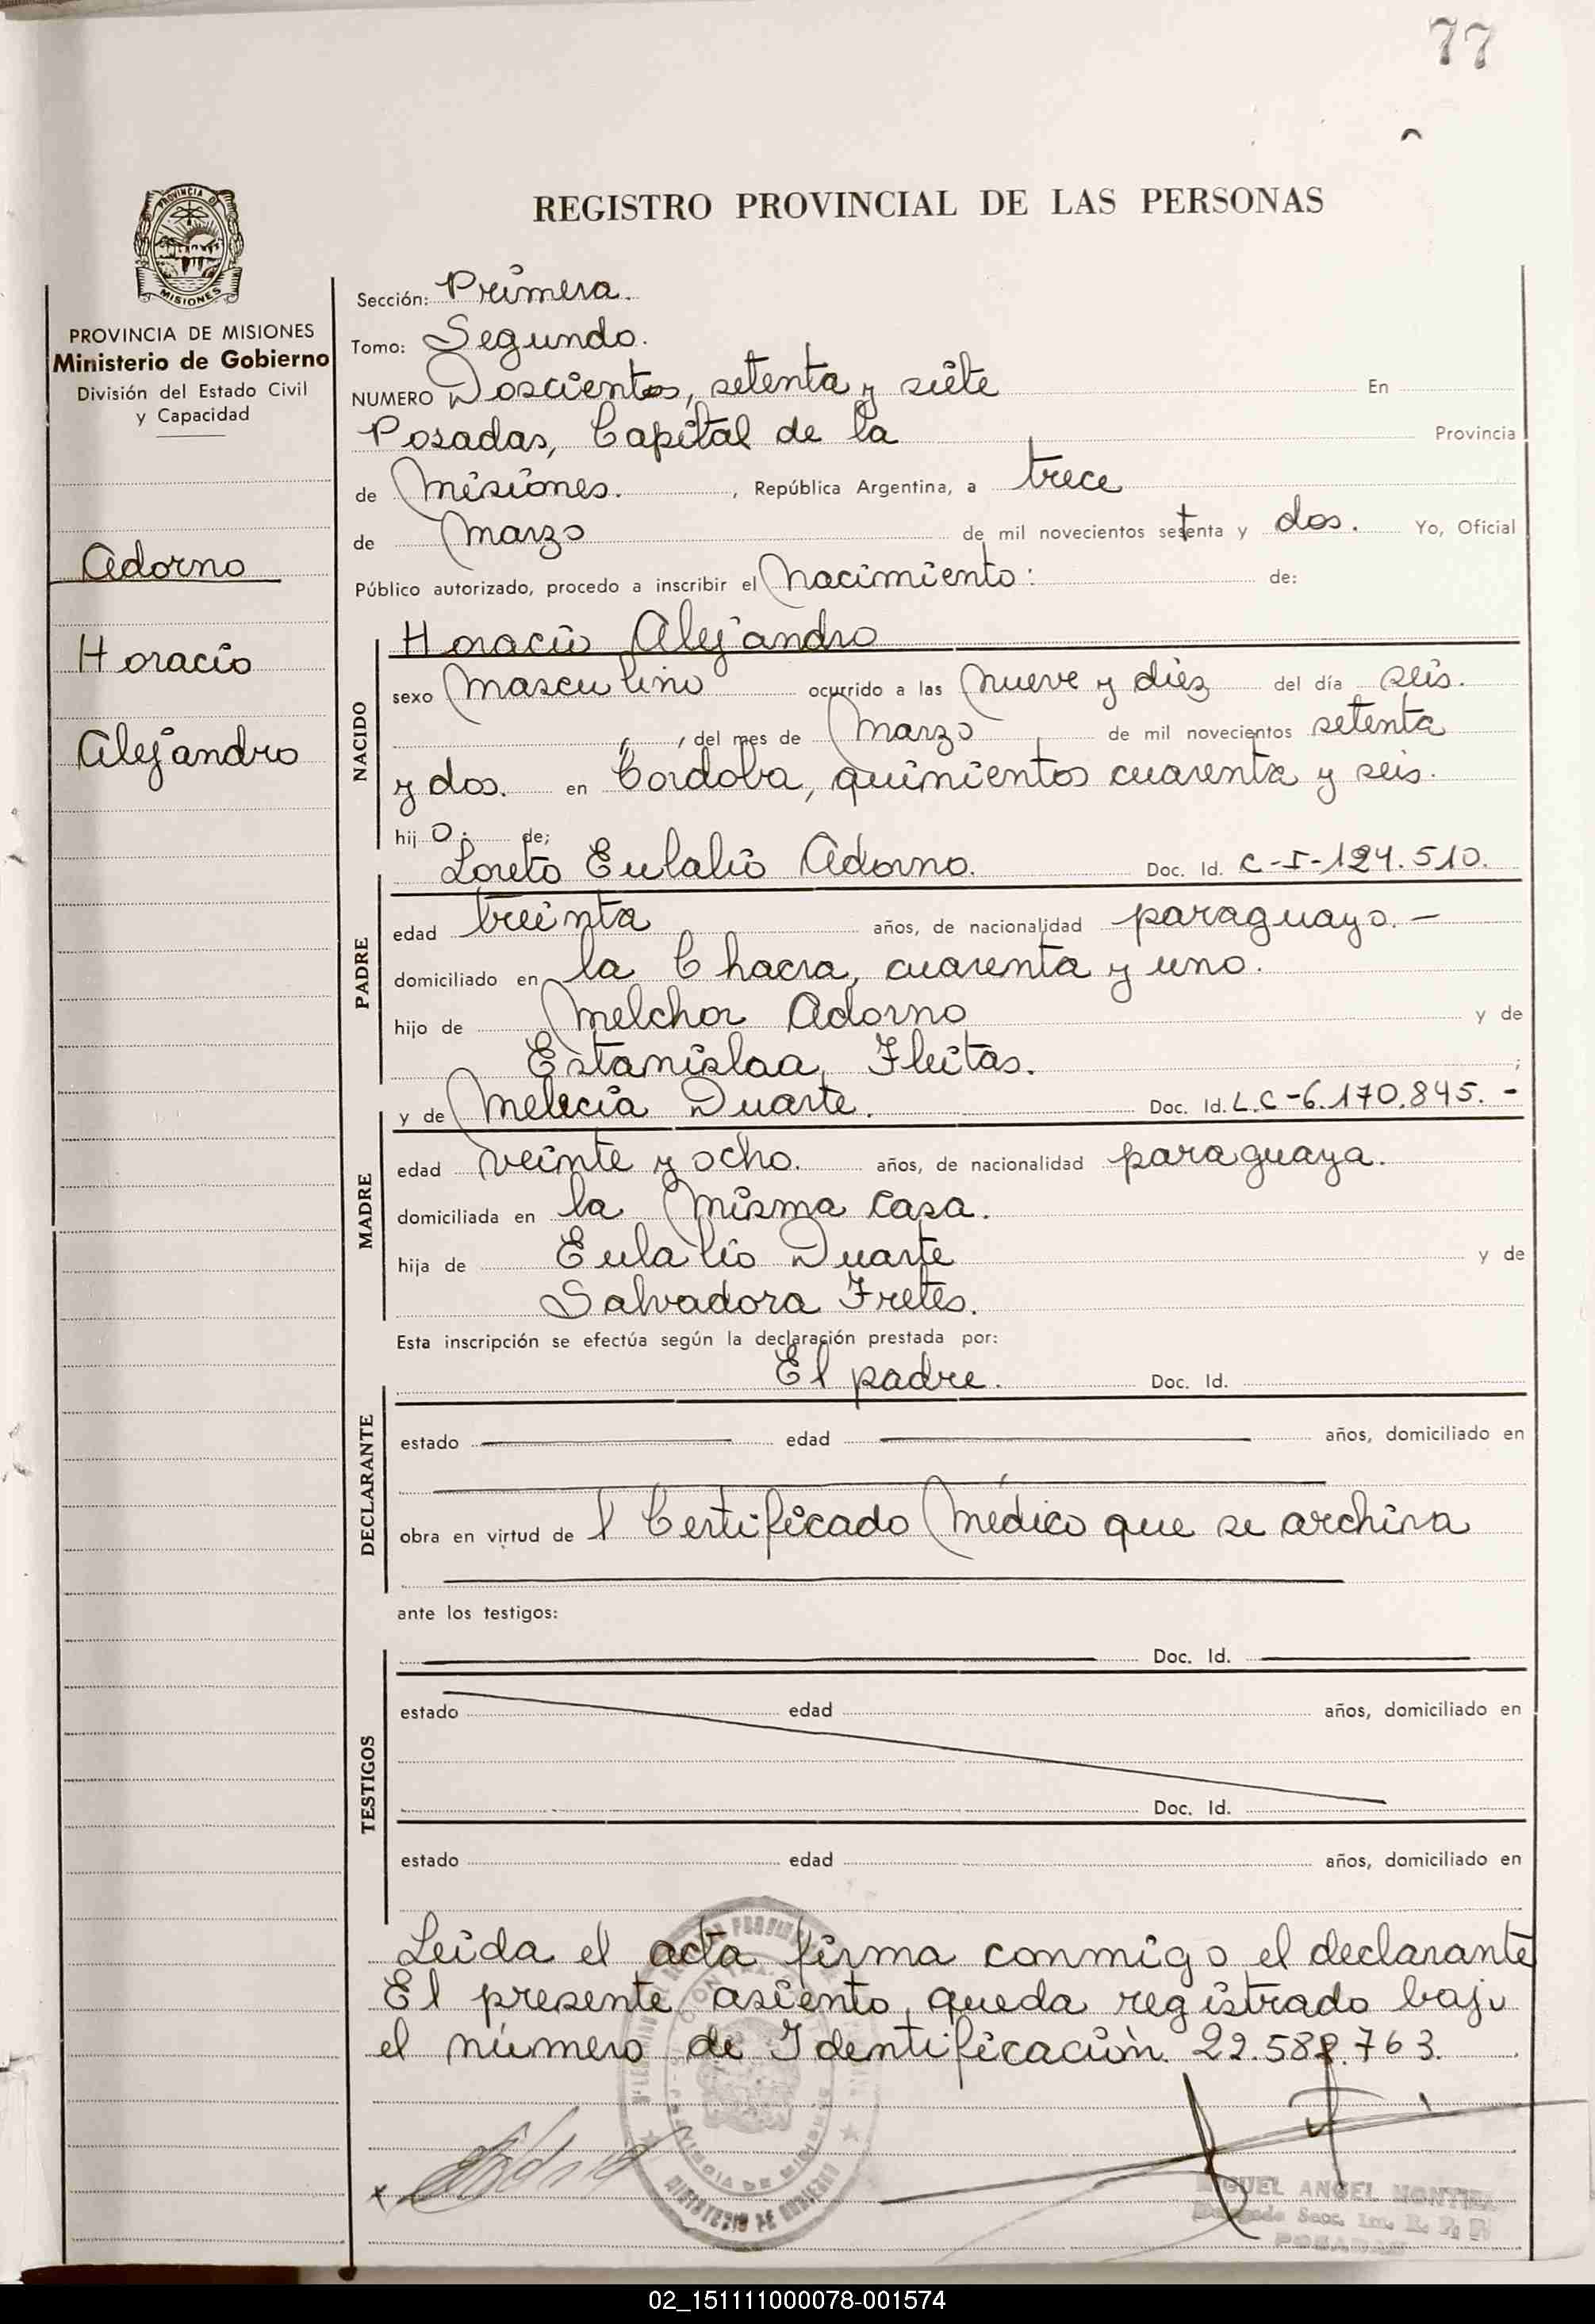 77
REGISTRO PROVINCIAL DE LAS PERSONAS
PROVINCIA DE MISIONES
MISIONES
PROVINCIA DE MISIONES
Ministerio de Gobierno
División del Estado Civil
y Capacidad
Adorno
Horacio
Alejandro
Sección: Primera.
Tomo: Segundo.
NUMERO Doscientos, setenta y siete En
Posadas, Capital de la Provincia
de Misiones. , República Argentina, a trece
de Marzo de mil novecientos setenta y dos. Yo, Oficial
Público autorizado, procedo a inscribir el Nacimiento: de:
NACIDO
Horacio Alejandro
sexo Masculino ocurrido a las Nueve y diez del día seis.
, del mes de Marzo de mil novecientos setenta
y dos. en Cordoba, quinientos cuarenta y seis.
hijo. de;
PADRE
Loreto Eulalio Adorno. Doc. Id. C-I-124.510.
edad treinta años, de nacionalidad paraguayo.-
domiciliado en la Chacra, cuarenta y uno.
hijo de Melchor Adorno y de
Estanislaa Fleitas. ;
MADRE
y de Melecia Duarte. Doc. Id. L.C-6.170.845.-
edad veinte y ocho. años, de nacionalidad paraguaya.
domiciliada en la Misma Casa.
hija de Eulalio Duarte y de
Salvadora Fretes.
Esta inscripción se efectúa según la declaración prestada por:
DECLARANTE
El padre. Doc. Id.
estado edad años, domiciliado en
obra en virtud de l Certificado Médico que se archiva
ante los testigos:
TESTIGOS
Doc. Id.
estado edad años, domiciliado en
Doc. Id.
estado edad años, domiciliado en
Leida el acta firma conmigo el declarante
El presente asiento, queda registrado bajo
el número de Identificación 22.588.763.
MINISTERIO DE GOBIERNO
MIGUEL ANGEL
POSADAS
02_151111000078-001574